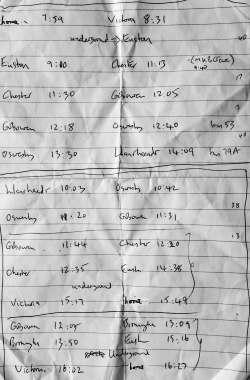 home 7:59 Victoria 8:31
underground → Euston
Euston 9:00 Chester 11:13
Chester 11:30 Gobowen 12:05
Gobowen 12:18 Oswestry 12:40 bus 53
Oswestry 13:30 Llanrhaedr 14:09 bus 79A
Llanrhaedr 10:03 Oswestry 10:42
Oswestry 11:20 Gobowen 11:31
Gobowen 11:44 Chester 12:20
Chester 12:35 Eust 14:38
underground
Victoria 15:17 home 15:49
Gobowen 12:05 Birmingha 13:09
Birmingha 13:50 Eust 15:16
Underground
Victoria 16:02 home 16:27